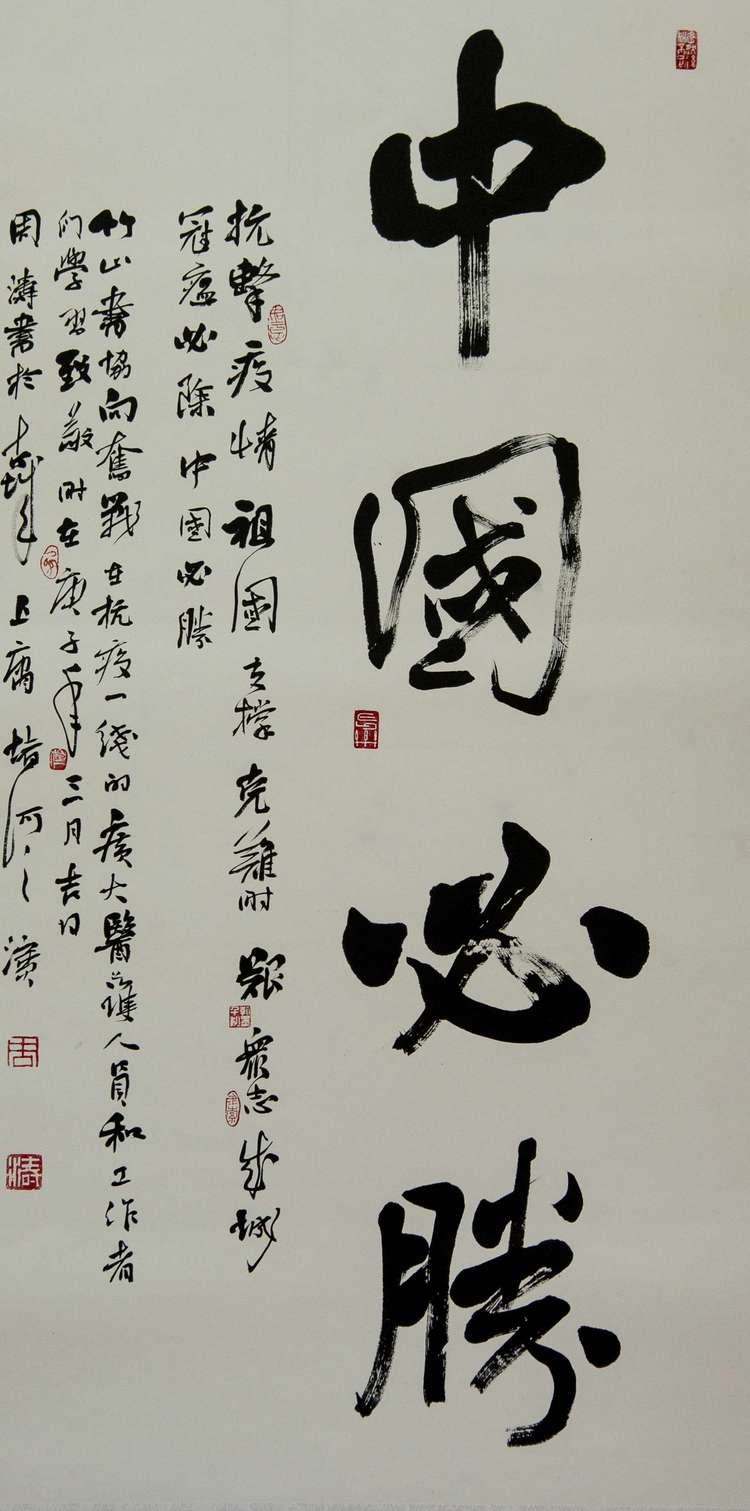 中國必勝
抗擊疫情 祖國支撐 克難時艱 衆志成城
冠瘟必除 中國必勝
竹山書協向奮戰在抗疫一綫的廣大醫護人員和工作者
們學習致敬 時在庚子年三月吉日
周濤書於 上庸堵河之濱
周
濤